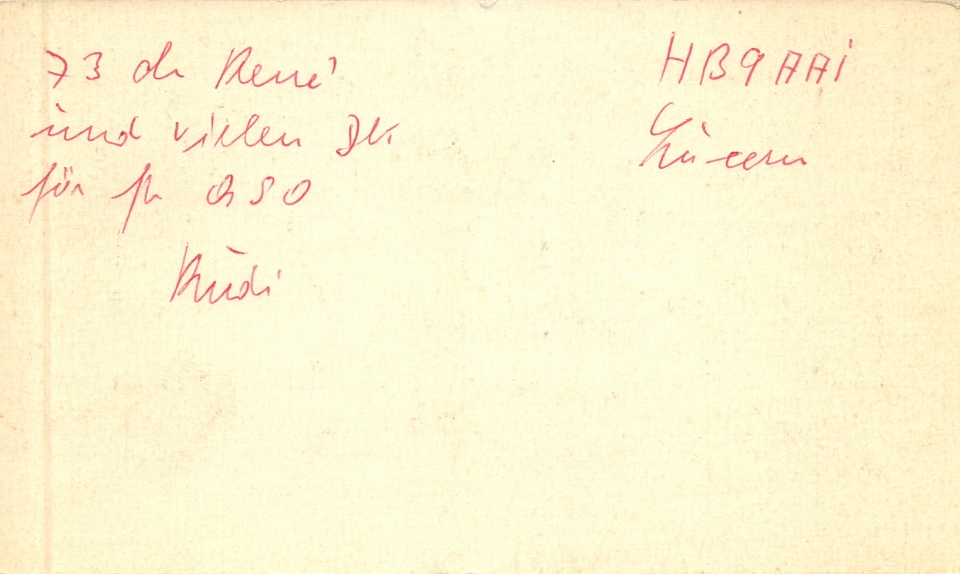 73 dr René
und vielen Dk
für fb QSO
Rüdi
HB9AAI
Luzern